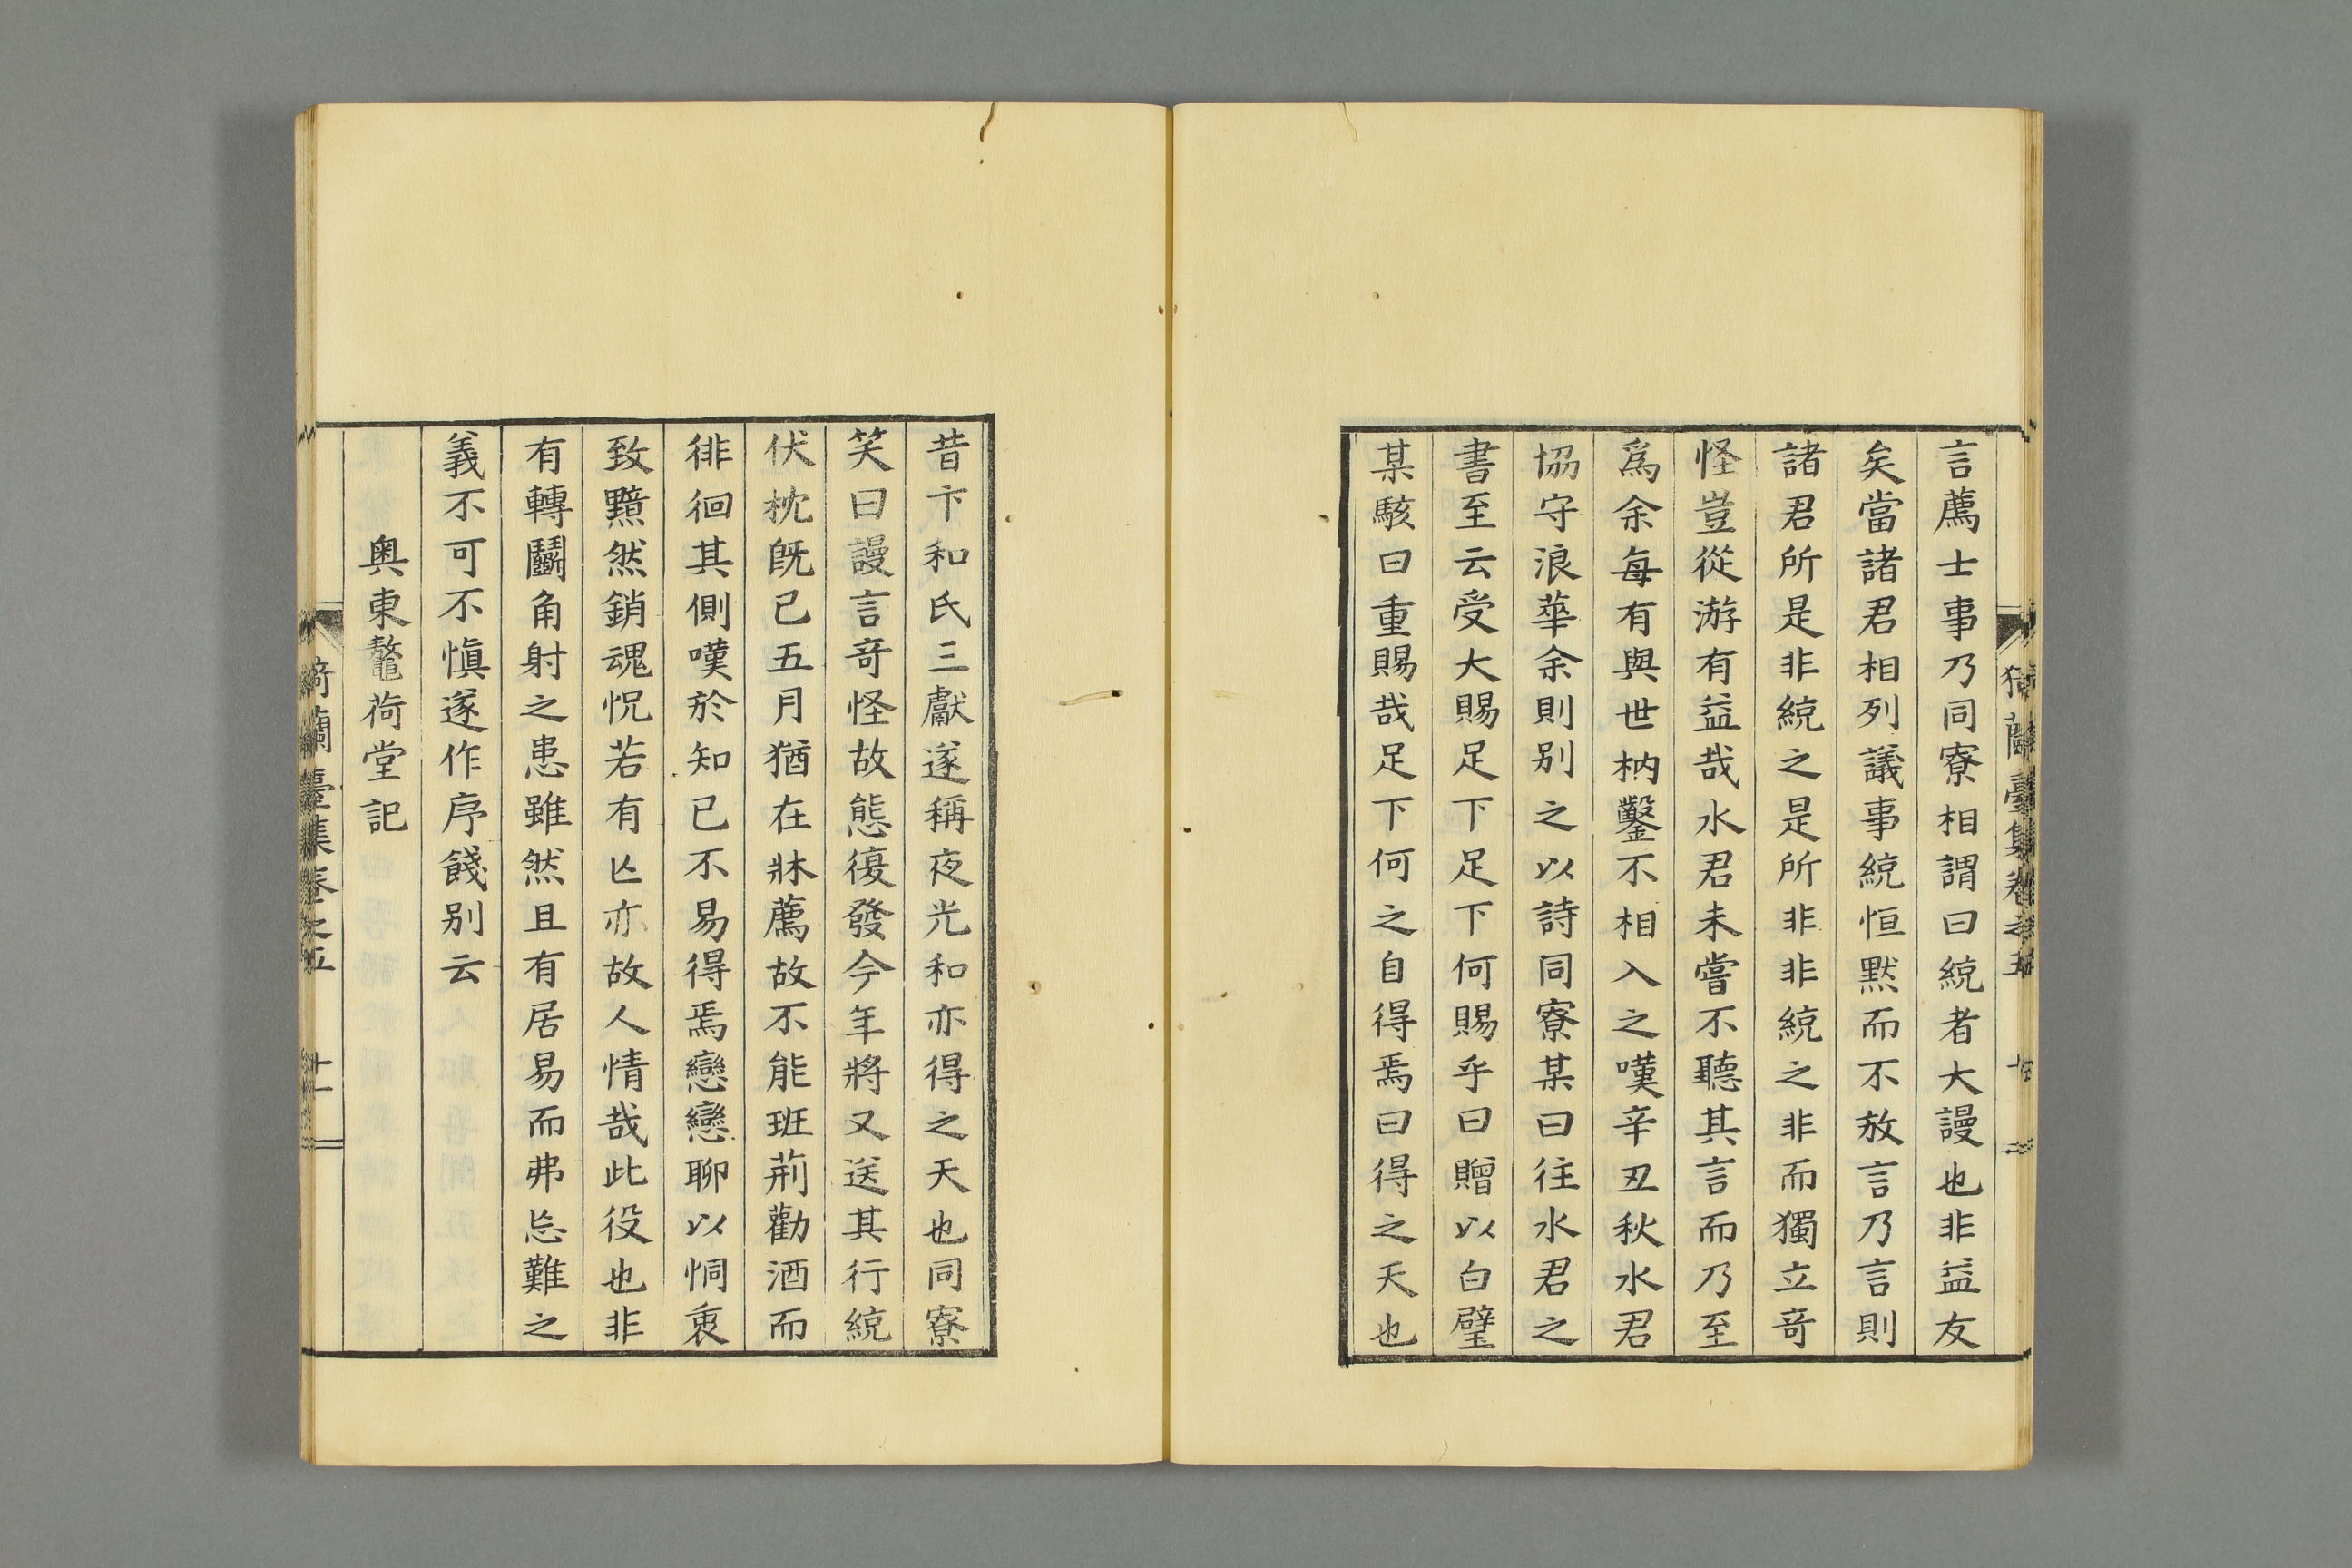 言薦士事乃同寮相謂曰統者大謾也非益友
矣當諸君相列議事統恒默而不敖言乃言則
諸君所是非統之是所非非統之非而獨立竒
怪豈從游有益哉水君未嘗不聽其言而乃至
爲余每有與世枘鑿不相入之嘆辛丑秋水君
恊守浪華余則别之以詩同寮某曰往水君之
書至云受大賜足下足下何賜乎曰贈以白璧
某駭曰重賜哉足下何之自得焉曰得之天也
昔卞和氏三獻遂稱夜光和亦得之天也同寮
笑曰謾言竒怪故態復發今年將又送其行統
伏枕既已五月猶在牀薦故不能班荊勸酒而
徘徊其側嘆於知已不易得焉戀戀聊以恫衷
致黯然銷魂怳若有亾亦故人情哉此役也非
有轉鬭角射之患雖然且有居易而弗忘難之
義不可不愼遂作序餞别云
奥東鼇荷堂記
猗蘭臺集卷之五